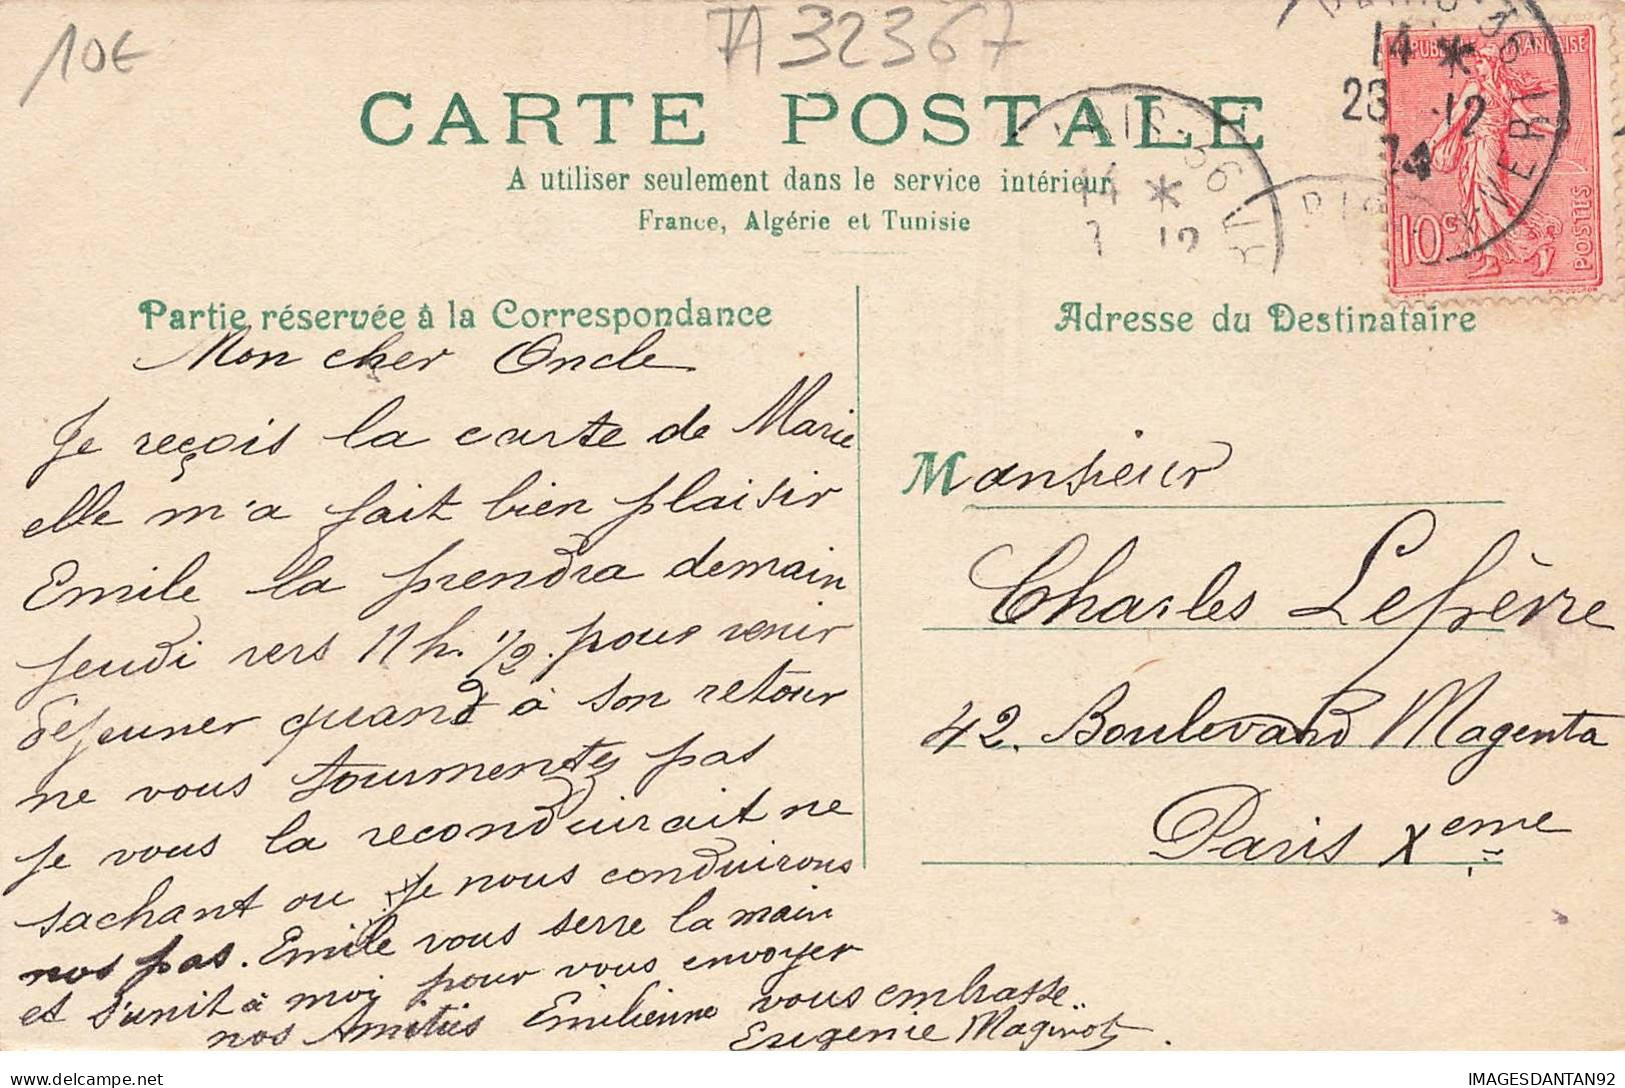 10€
TA 32367
CARTE POSTALE
A utiliser seulement dans le service intérieur
France, Algérie et Tunisie
14 *
12
14 *
12
RÉPUBLIQUE FRANÇAISE
10c
POSTES
Partie réservée à la Correspondance
Mon cher Oncle
Je reçois la carte de Marie
elle m'a fait bien plaisir
Emile la prendra demain
jeudi vers 11 h. 1/2. pour venir
déjeuner quand à son retour
ne vous tourmentez pas
je vous la reconduirait ne
sachant ou je nous conduirons
nos pas. Emile vous serre la main
et s'unit à moi pour vous envoyer
nos Amitiés Emilienne vous embrasse..
Eugenie Maginot.
Adresse du Destinataire
Monsieur
Charles Lefèvre
42. Boulevard Magenta
Paris Xeme
IMAGESDANTAN92